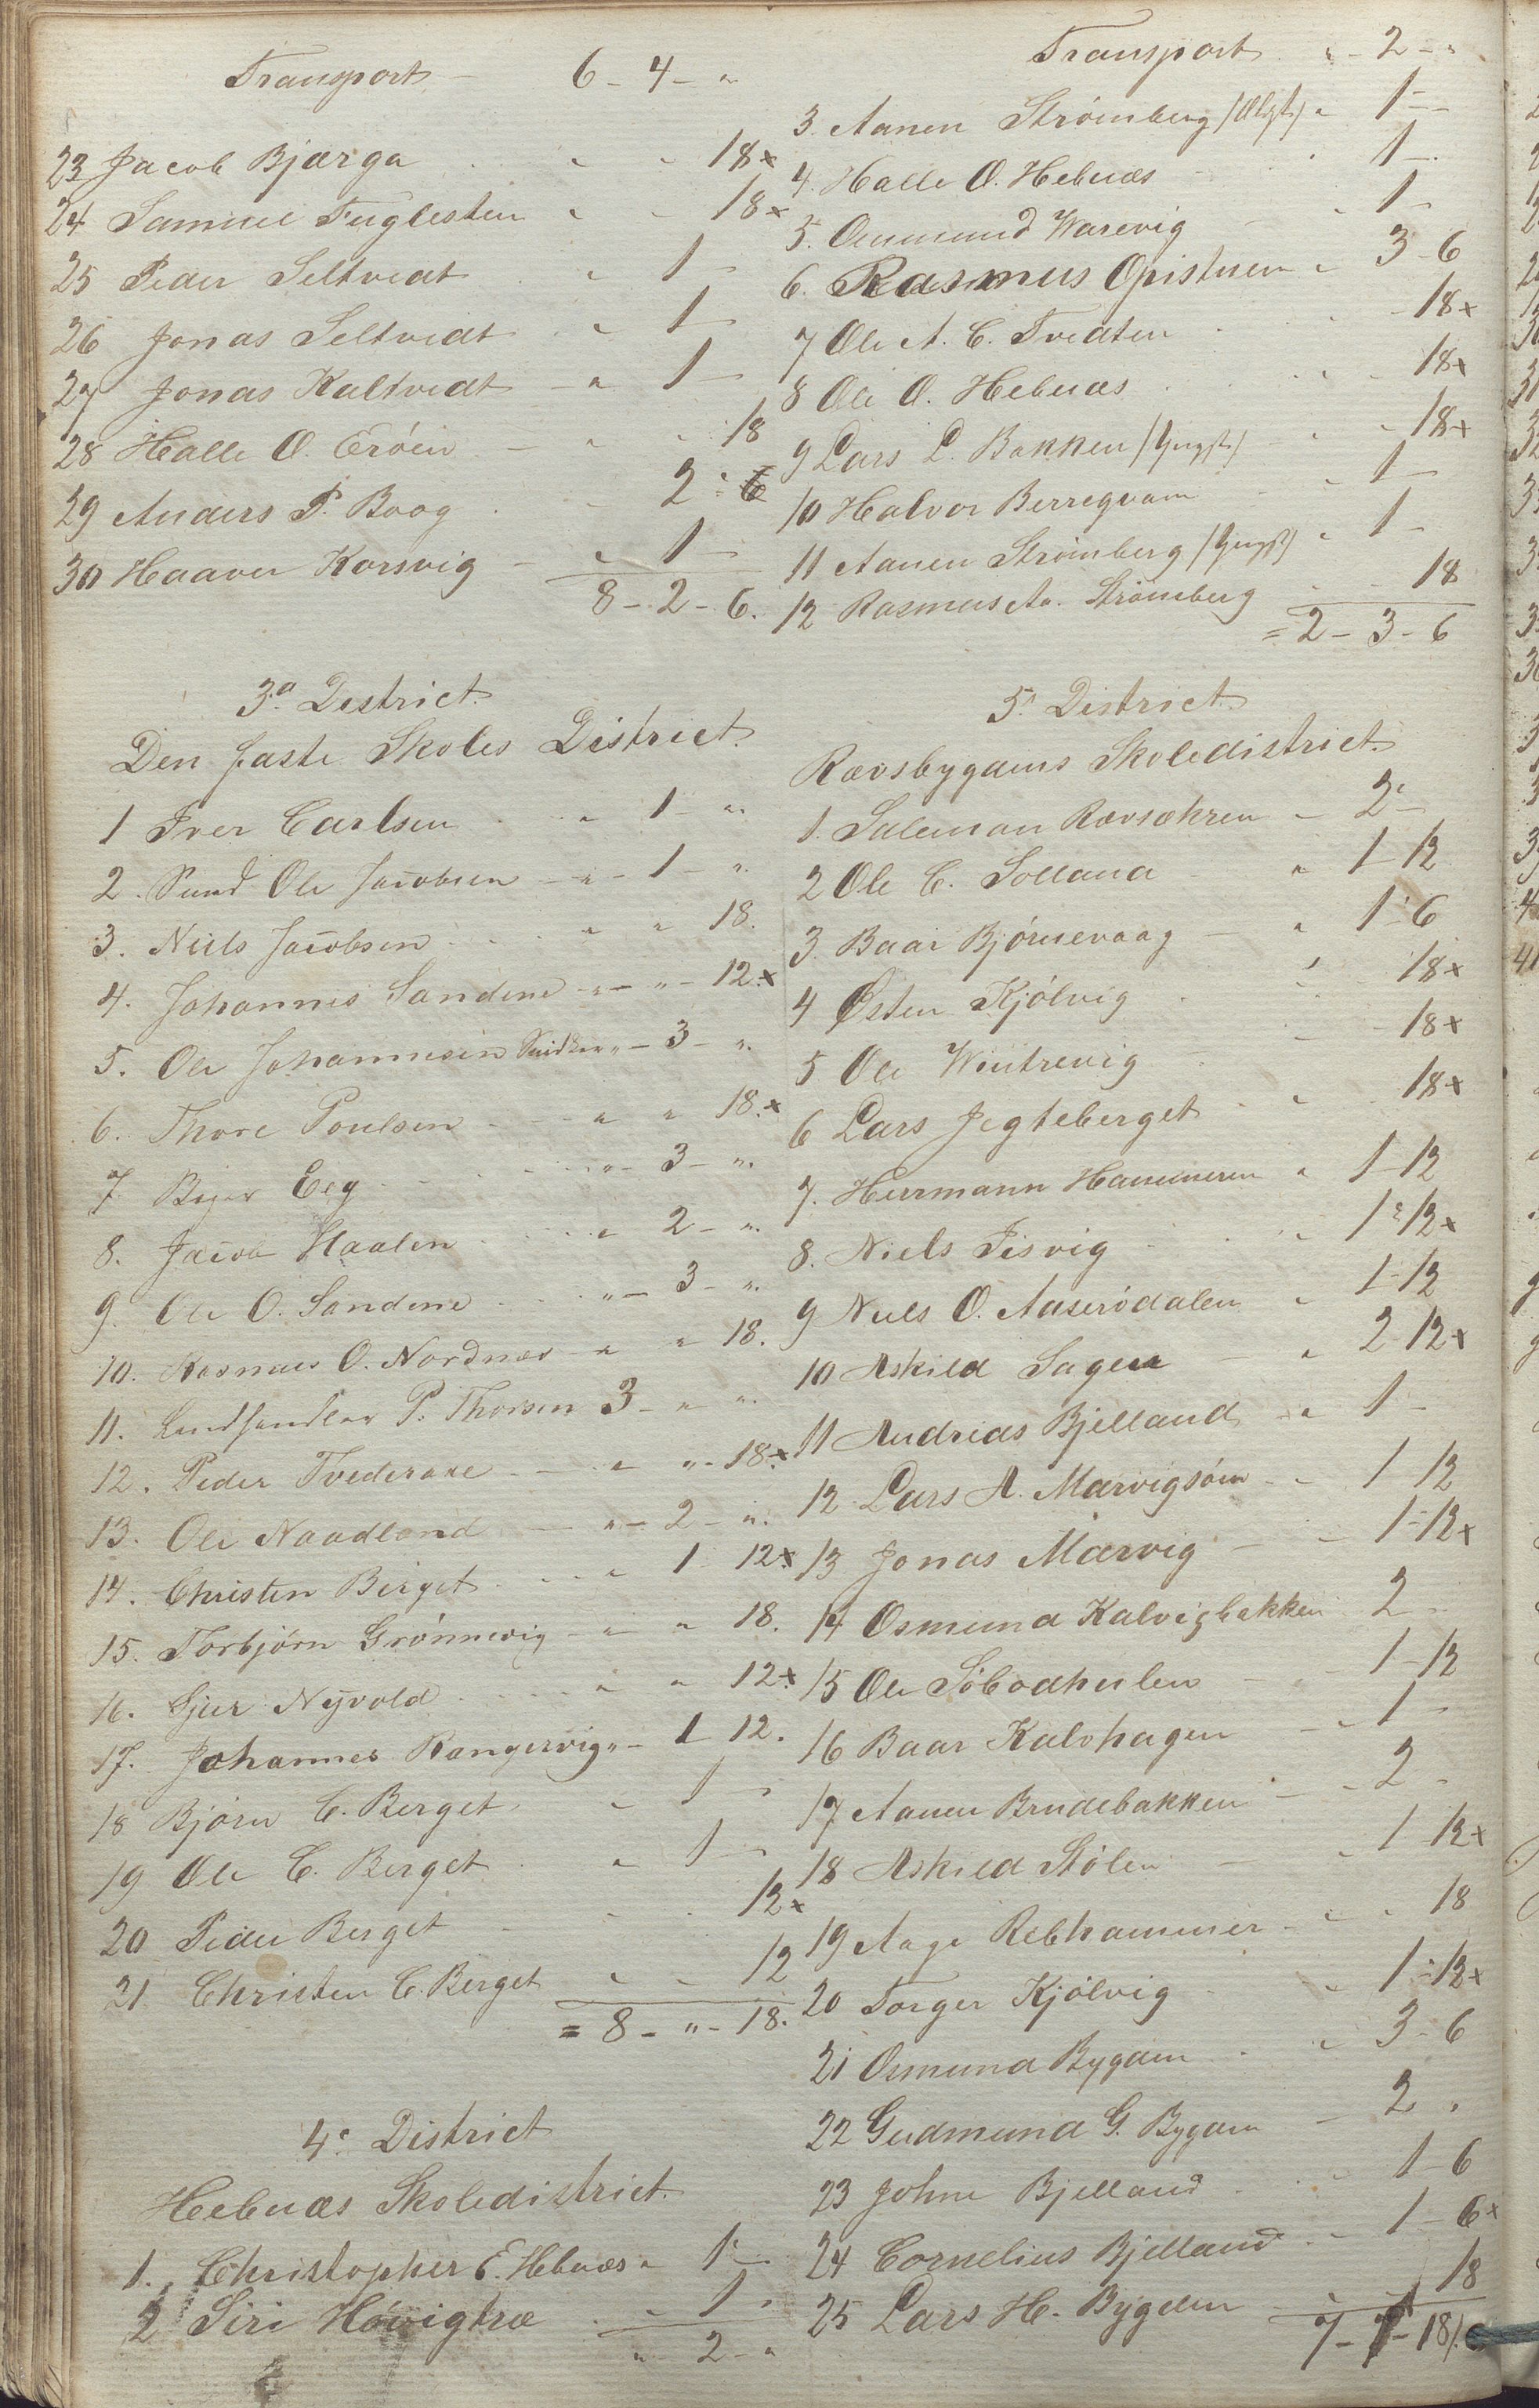 Transport - 6 - 4 - "
23 Jacob Bjærga " " 18 x
24 Samuel Fuglesteen " " 18 x
25 Peder Seltvedt " 1 -
26 Jonas Seltvedt " 1 -
27 Jonas Kaltvedt - " 1 -
28 Halle O. Erøen - " " 18
29 Anders P. Boog - 2 - 6
30 Haaver Korsvig - " 1 -
8 - 2 - 6.
3die District.
Den faste Skoles District.
1 Iver Carlsen " 1 - "
2. Sund Ole Jacobsen - " - 1 - "
3. Niels Jacobsen " " 18.
4. Johannes Sandene - " - " - 12. x
5. Ole Johannesen Snidker " - 3 - "
6. Thore Poulsen " " 18. x
7 Eeg " - 3 - "
8. Jacob Haalen " 2 - "
9. Ole O. Sandene " - 3 - "
10. Rasmus O. Nordnæs - " " 18.
11. Landhandler P. Thorsen 3 - " "
12. Peder Tvederane - " " - 18. x
13. Ole Naadland - " - 2 - "
14. Christen Berget " 1 - 12 x
15. Torbjørn Grønnevig - " " 18.
16. Sjur Nÿvold " " 12 x
17. Johannes Rangervig " - 1 12.
18 Bjørn C. Berget " 1 -
19 Ole C. Berget " 1 -
20 Peder Berget - " " 12 x
21 Christen C. Berget " " 12
= 8 - " - 18.
4de District
Hebnæs Skoledistrict.
1. Christopher E. Hebnæs " 1 -
2 Siri Høvigtræ " 1 -
" - 2 - "
Transport " - 2 - "
3. Aanen Strømberg " 1 -
4. Halle O. Hebnæs - 1 -
5. Ommund Warevig - " 1 -
6. Rasmus Opistuen " 3 - 6
7 Ole A. C. Tvedten - 18 x
8 Ole O. Hebnæs " - 18 x
9 Lars L. Bakken - " - 18 x
10 Halvor Berregvam - " 1 -
11 Aanen Strømberg " 1 -
12 Rasmus Aa. Strømberg " - 18
= 2 - 3 - 6
5te District.
Ravsbygdens Skoledistrict.
1. Salemon Ravsæhren - 2 -
2 Ole C. Solland " 1 - 12
3. Baar Bjørnevaag - " 1 - 6
4 Østen Kjølvig " 18 x
5 Ole Wintrevig - 18 x
6 Lars Jegteberget " 18 x
7. Herrmann Hammeren " 1 - 12
8. Niels Jisvig " 1 - 12 x
9 Niels O. Aaserødalen " 1 - 12
10 Askild Sagen - " 2 - 12 x
11 Andreas Bjelland " 1 -
12 Lars A. Marvigsøen - " 1 - 12
13 Jonas Marvig - " 1 - 12 x
14 Osmund Kalvigbakken 2
15 Ole Søbodhulen - 1 - 12
16 Baar Kalvhagen - " 1 -
17 Aanen Brudebakken - " 2 -
18 Askild Stølen - " 1 - 12 x
19 Aage Rebhammer - " " 18
20 Torger Kjølvig " 1 - 12 x
21 Osmund Bygden " 3 - 6
22 Gudmund G. Bygden - 2 "
23 John Bjelland " 1 - 6
24 Cornelius Bjelland - 1 - 6 x
25 Lars H. Bygden - " - 18
7 - 1 - 18